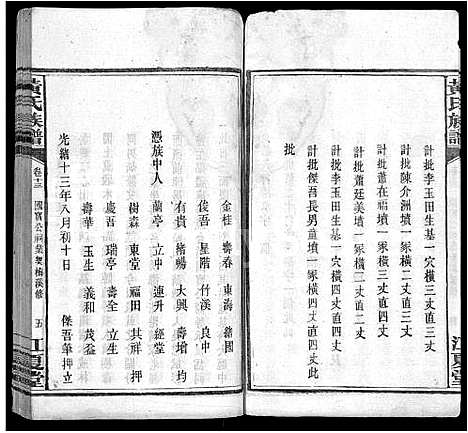 黃氏族譜
江夏堂
計批李玉田生基一穴橫三丈直三丈
計批陳介洲墳一冢橫二丈直二丈
計批蕭在福墳一冢橫二丈直二丈
計批蕭廷美墳一冢橫二丈直二丈
計批李玉田生基一穴橫三丈直三丈
計批傑吾長男童墳一冢橫四丈直四丈此
批
金桂 壽春 東海 緒國
俊吾 星階 竹溪 良中
有貴 緒暢 大興 壽增 均
憑族中人 蘭亭 立中 連升 經堂
樹森 東堂 福田 其祥 押
慶吾 瑞亭 壽全 立生
壽華 玉生 義和 茂盈
光緒十三年八月初十日 傑吾筆押立
黃氏族譜
卷十三 國寶公祠業契楠溪修 五
江夏堂